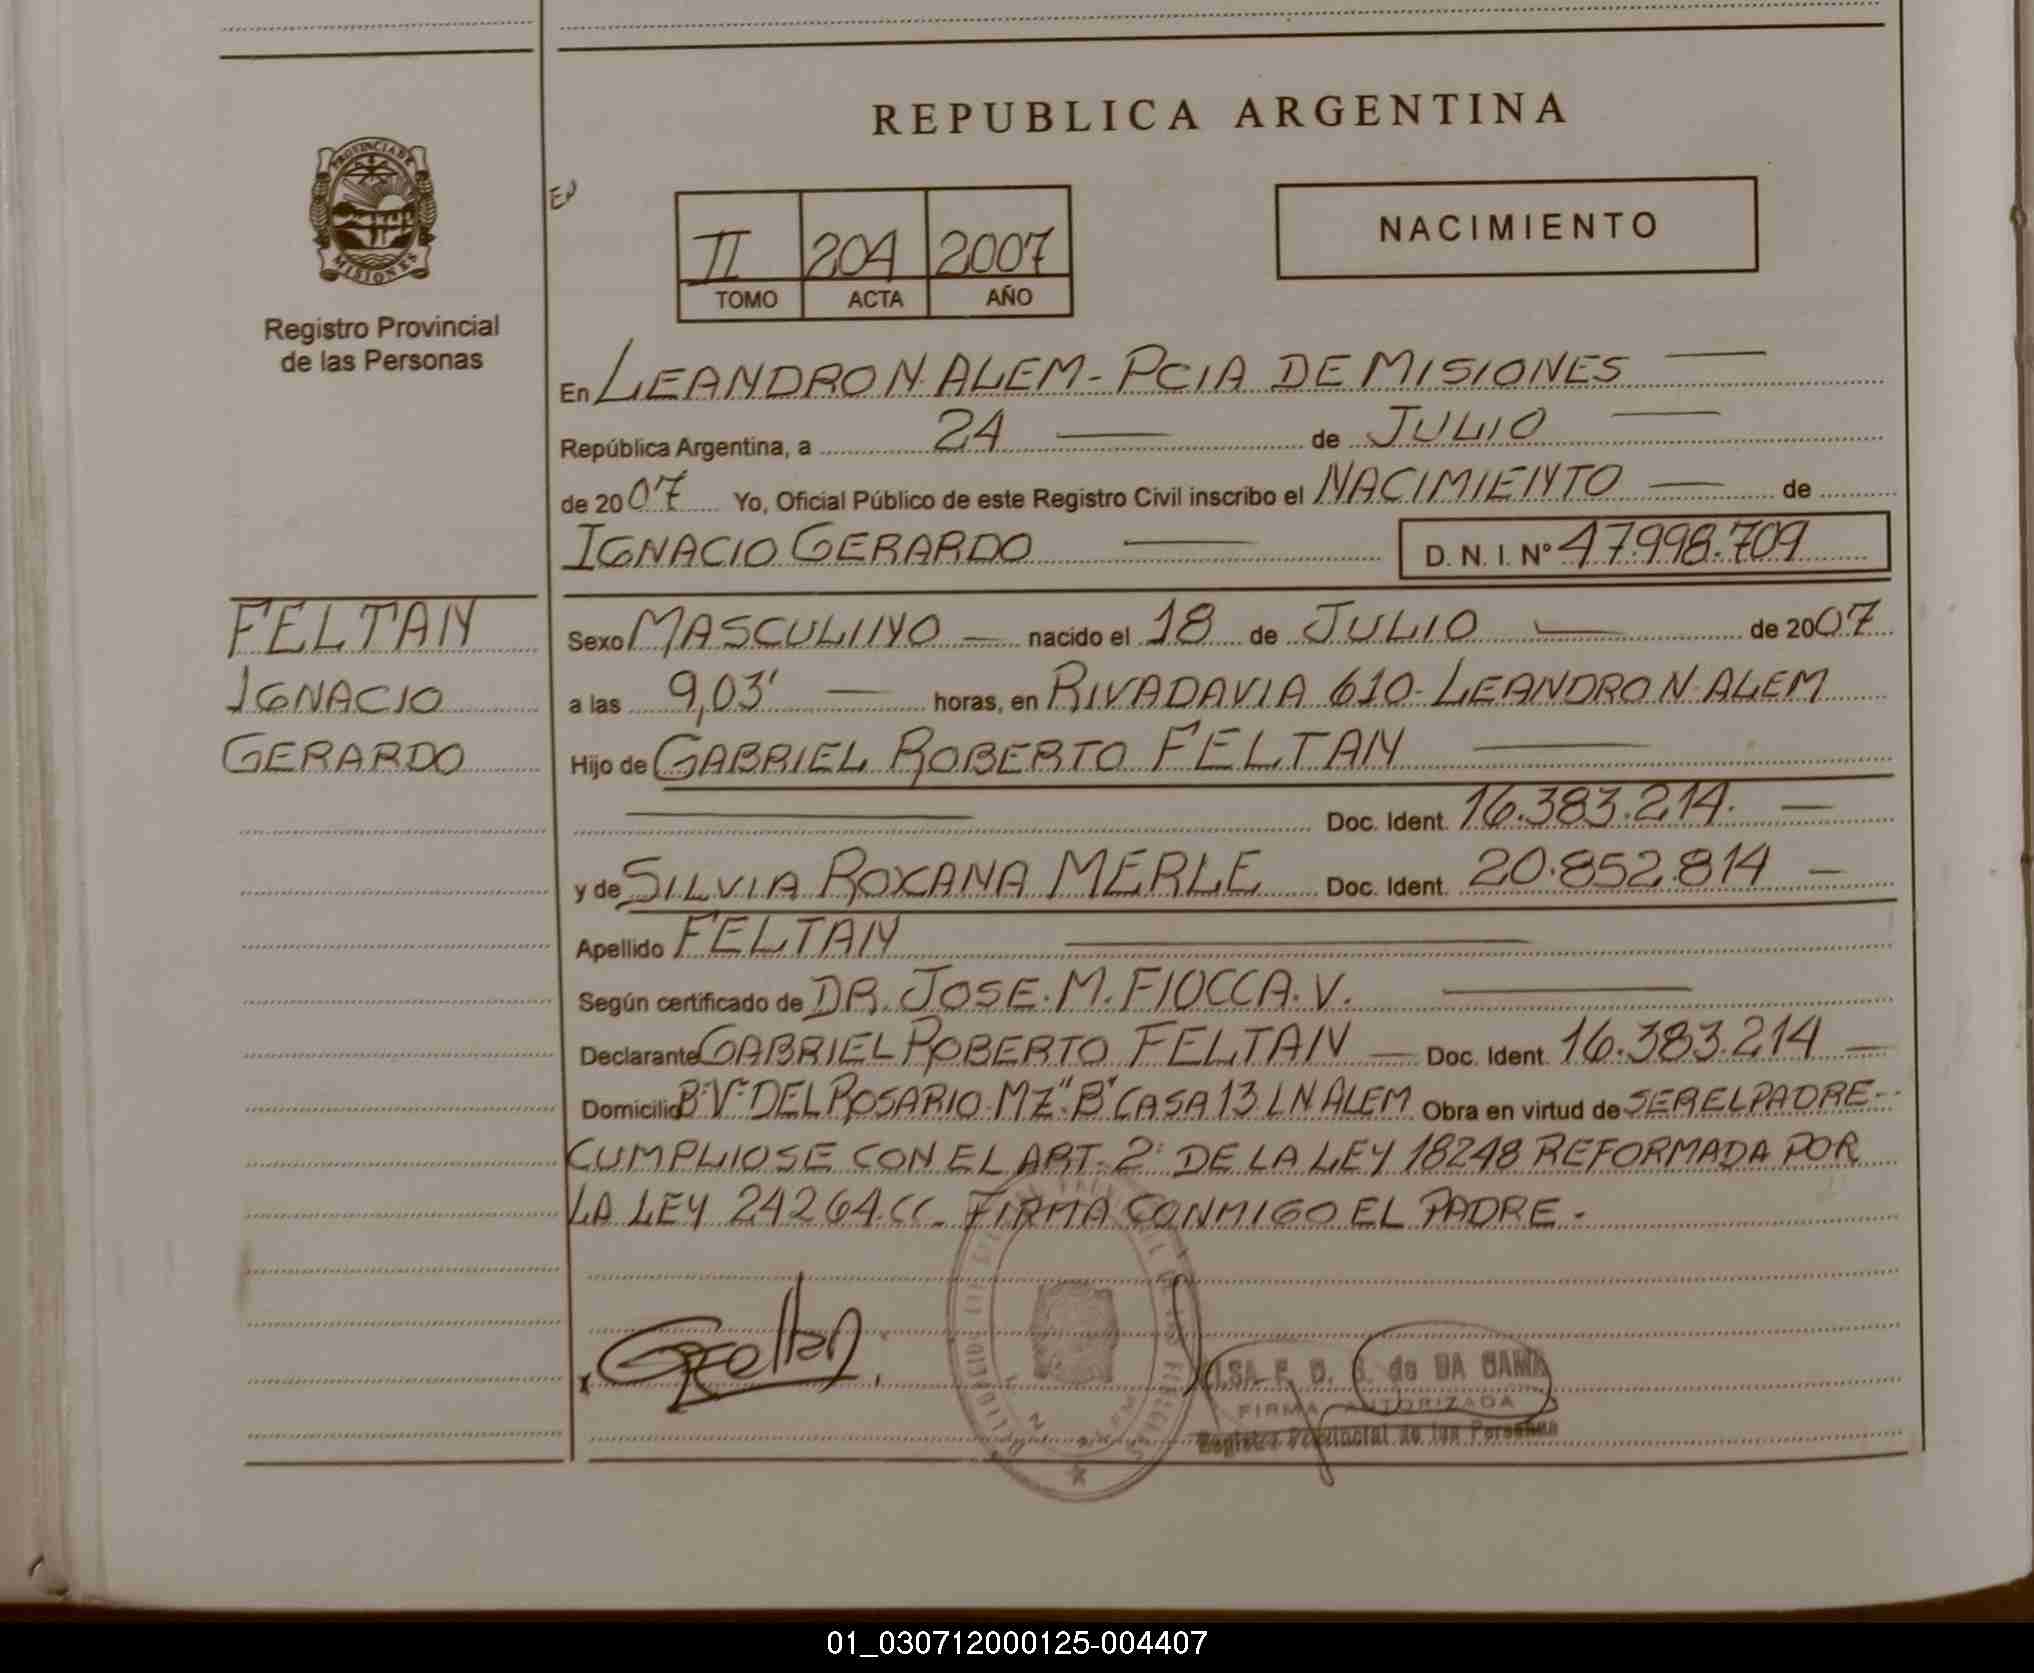 REPUBLICA ARGENTINA
PROVINCIA DE
MISIONES
Registro Provincial
de las Personas
II 204 2007
TOMO ACTA AÑO
NACIMIENTO
En LEANDRO N. ALEM - PCIA DE MISIONES
República Argentina, a 24 de JULIO
de 2007 Yo, Oficial Público de este Registro Civil inscribo el NACIMIENTO de
IGNACIO GERARDO D. N. I. Nº 47.998.709
FELTAN
IGNACIO
GERARDO
Sexo MASCULINO nacido el 18 de JULIO de 2007
a las 9,03' horas, en RIVADAVIA 610- LEANDRO N. ALEM
Hijo de GABRIEL ROBERTO FELTAN
Doc. Ident. 16.383.214.
y de SILVIA ROXANA MERLE Doc. Ident. 20.852.814
Apellido FELTAN
Según certificado de DR. JOSE. M. FIOCCA. V.
Declarante GABRIEL ROBERTO FELTAN Doc. Ident. 16.383.214
Domicilio Bº Vº DEL ROSARIO MZ "B" CASA 13 L N ALEM Obra en virtud de SER EL PADRE.-
CUMPLIOSE CON EL ART. 2º DE LA LEY 18248 REFORMADA POR
LA LEY 24264. CC. FIRMA CONMIGO EL PADRE.
GFeltan
de DA GAMA
FIRMA AUTORIZADA
Registro Provincial de las Personas
01_030712000125-004407